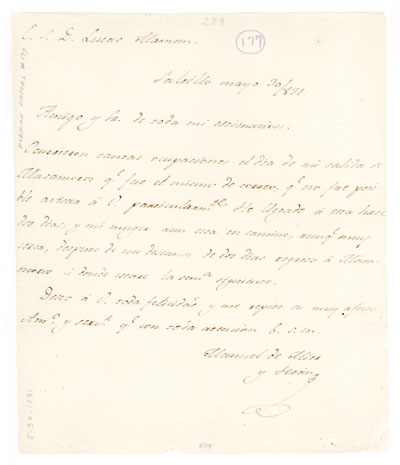 229
177
E. S. D. Lucas Alaman.
Saltillo mayo 30/831
Amigo y Sr. de toda mi estimacion:
Ocurrieron tantas ocupaciones el dia de mi salida de
Matamoros qe. fué el mismo de correo, qe. no fue posi-
ble avisar á V. particularmte. He llegado á esta hace
dos dias, y mi muger aun esta en camino, aunqe. muy
cerca; despues de un descanso de dos dias regreso á Mata-
moros á donde estare la semª. siguiente.
Deseo á V. toda felicidad, y me repito su muy afecto
Amº. y servr. qe. con toda atencion b. s. m.
Manuel de Mier
y Terán
5-30-1831